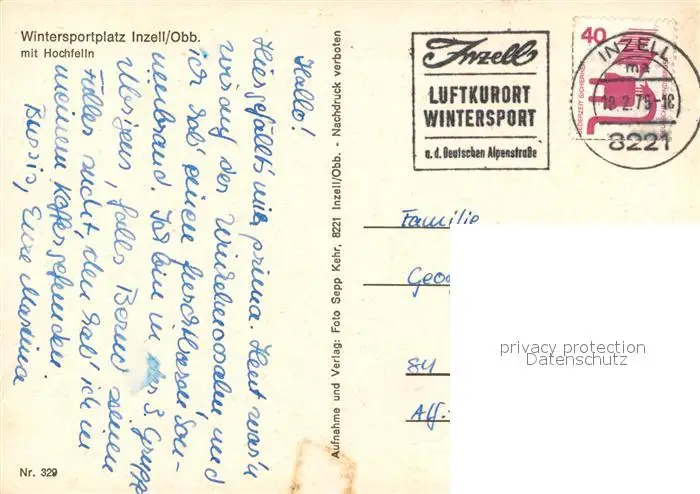 Wintersportplatz Inzell/Obb.
mit Hochfelln
Hallo!
Hier gefällt's mir prima. Heut war'n
wir auf der Windbeutelalm und
ich hab' einen furchtbaren Son-
nenbrand. Ich bin in der 3. Gruppe
Übrigens, falls Bernd seinen
Füller sucht, den hab' ich in
meinem Koffer gefunden.
Bussis, Eure Martina
Aufnahme und Verlag: Foto Sepp Kehr, 8221 Inzell/Obb. - Nachdruck verboten
Inzell
LUFTKURORT
WINTERSPORT
a. d. Deutschen Alpenstraße
40
JEDERZEIT SICHERHEIT
INZELL
ma
2.75-18
8221
Familie
Geo
84
privacy protection
Datenschutz
Nr. 329